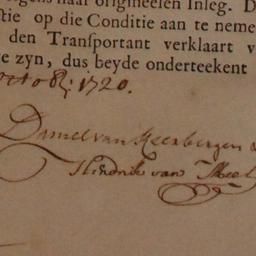 naar origineelen Inleg. D
tie op die Conditie aan te neme
den Transportant verklaart v
e zyn, dus beyde onderteekent
octob; 1720.
Daniel van Keerbergen &
Hendrik van Meel